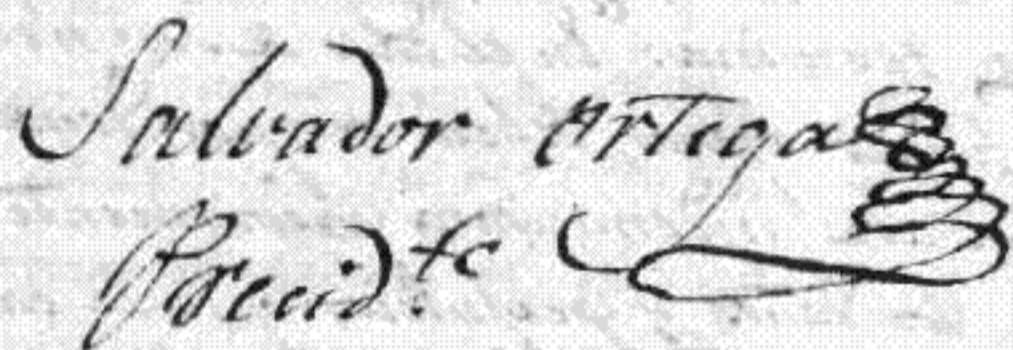 Salvador ortega
Precid.te